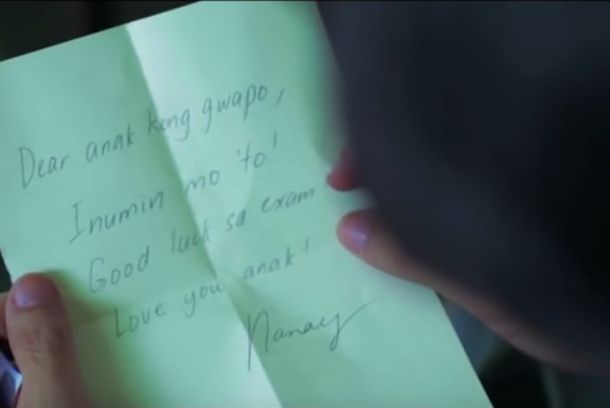 Dear anak kong gwapo,
Inumin mo 'to!
Good luck sa exam!
Love you anak!
Nanay